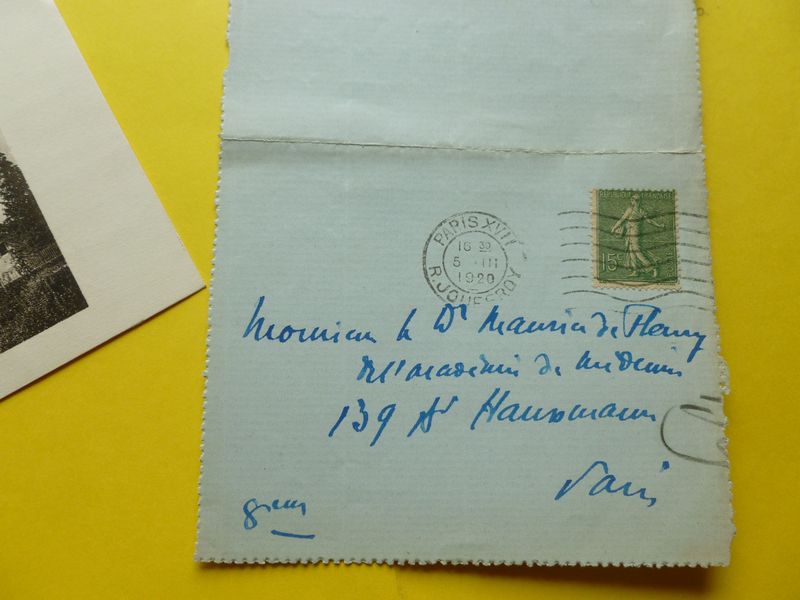 PARIS XVII
16 30
5 III
1920
R. JOUFFROY
REPUBLIQUE FRANCAISE
15c
Monsieur le Dr Maurice de Fleury
de l'académie de médecine
139 Bd Haussmann
Paris